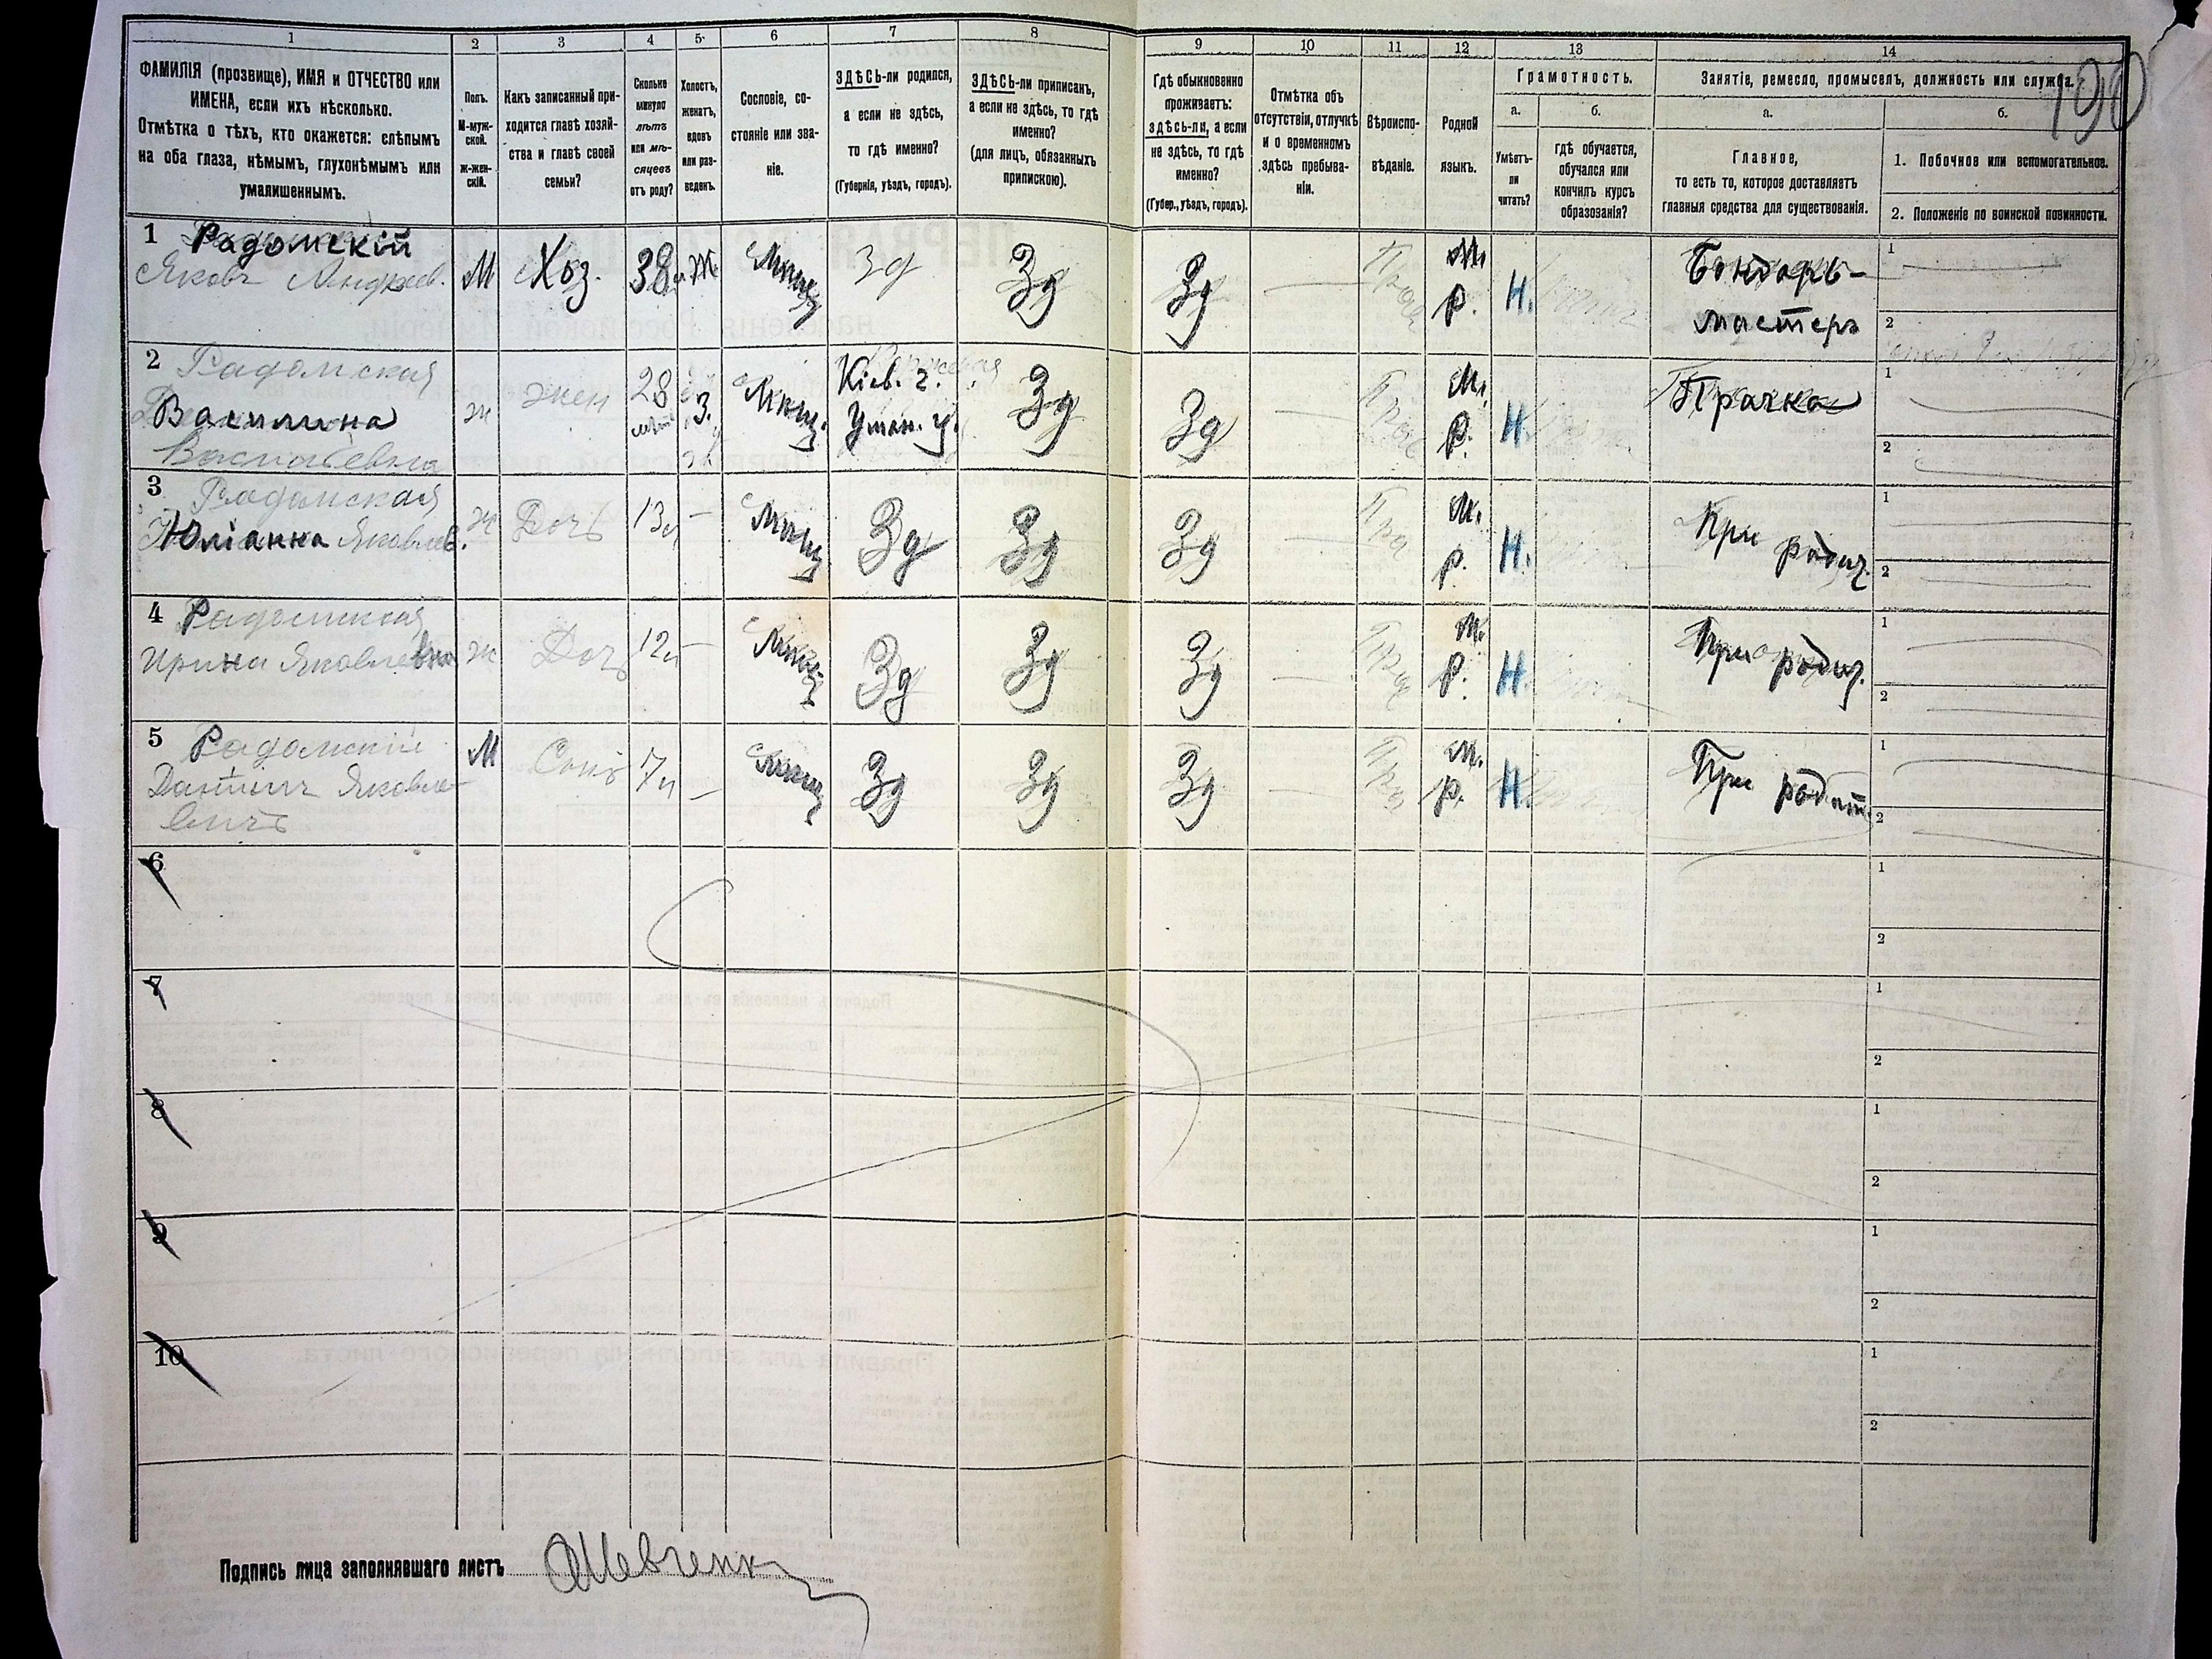 190
1 2 3 4 5 6 7 8 9 10 11 12 13 14
ФАМИЛІЯ (прозвище), ИМЯ и ОТЧЕСТВО или
ИМЕНА, если ихъ нѣсколько.
Отмѣтка о тѣхъ, кто окажется: слѣпымъ
на оба глаза, нѣмымъ, глухонѣмымъ или
умалишеннымъ.
Полъ.
М-муж-
ской.
ж-жен-
скій.
Какъ записанный при-
ходится главѣ хозяй-
ства и главѣ своей
семьи?
Сколько
минуло
лѣтъ
или мѣ-
сяцевъ
отъ роду?
Холостъ,
женатъ,
вдовъ
или раз-
веденъ.
Сословіе, со-
стояніе или зва-
ніе.
ЗДѢСЬ-ли родился,
а если не здѣсь,
то гдѣ именно?
(Губернія, уѣздъ, городъ).
ЗДѢСЬ-ли приписан,
а если не здѣсь, то гдѣ
именно?
(для лицъ, обязанныхъ
припискою).
Гдѣ обыкновенно
проживаетъ:
здѣсь-ли, а если
не здѣсь, то гдѣ
именно?
(Губер., уѣздъ, городъ).
Отмѣтка объ
отсутствіи, отлучкѣ
и о временномъ
здѣсь пребыва-
ніи.
Вѣроиспо-
вѣданіе.
Родной
языкъ.
Грамотность.
а. б.
Умѣетъ-
ли
читать?
гдѣ обучается,
обучался или
кончилъ курсъ
образованія?
Занятіе, ремесло, промыселъ, должность или служба.
а. б.
Главное,
то есть то, которое доставляетъ
главныя средства для существованія.
1. Побочное или вспомогательное.
2. Положеніе по воинской повинности.
1 Радомскій
Яковъ М Хоз. 38 Ж Мѣщ Зд Зд Зд М. р. Н. Бондарь-
мастеръ
1
2
2 Радомская
Василина
ж жен 28 З. Мѣщ. Кіев. г. Уман. у. Зд Зд М. р. Н. Прачка
1
2
3 Радомская
Юліанка Яковлев.
ж Дочь 13 Мѣщ Зд Зд Зд М. р. Н. При родит.
1
2
4 Радомская
Ирина Яковлевна ж Дочь 12 Мѣщ Зд Зд Зд М. р. Н. При родит.
1
2
5 Радомскій
Даніилъ Яковле-
вичъ
М Сынъ 7 Мѣщ Зд Зд Зд М. р. Н При родит.
1
2
6
1
2
7
1
2
8
1
2
9
1
2
10
1
2
Подпись лица заполнявшаго листъ Шевченк